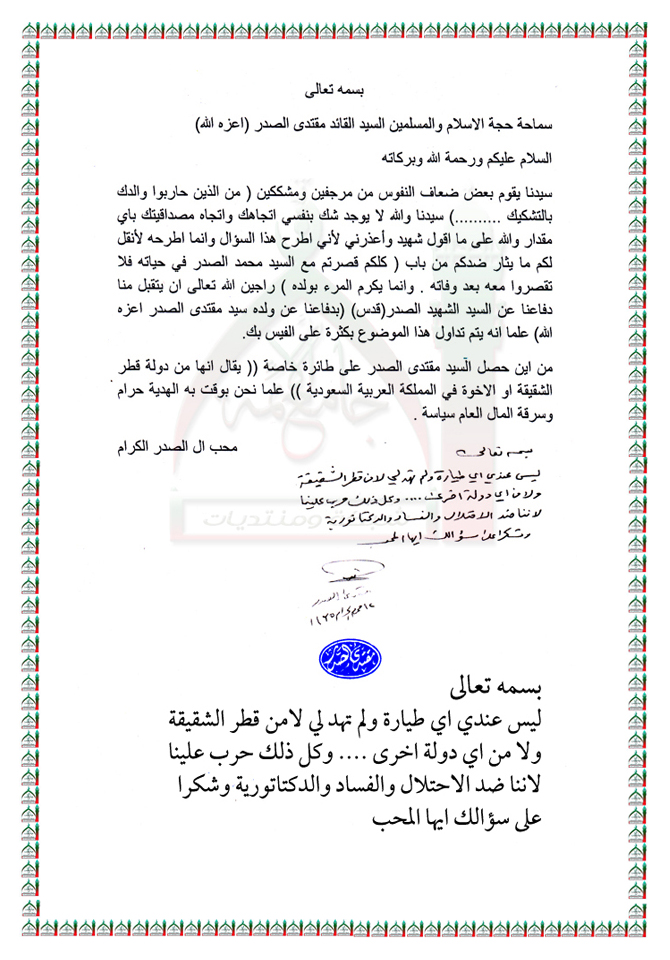 بسمه تعالى
سماحة حجة الاسلام والمسلمين السيد القائد مقتدى الصدر (اعزه الله)
السلام عليكم ورحمة الله وبركاته
سيدنا يقوم بعض ضعاف النفوس من مرجفين ومشككين ( من الذين حاربوا والدك
بالتشكيك ..........) سيدنا والله لا يوجد شك بنفسي اتجاهك واتجاه مصداقيتك باي
مقدار والله على ما اقول شهيد وأعذرني لأني اطرح هذا السؤال وانما اطرحه لأنقل
لكم ما يثار ضدكم من باب ( كلكم قصرتم مع السيد محمد الصدر في حياته فلا
تقصروا معه بعد وفاته . وانما يكرم المرء بولده ) راجين الله تعالى ان يتقبل منا
دفاعنا عن السيد الشهيد الصدر(قدس) (بدفاعنا عن ولده سيد مقتدى الصدر اعزه
الله) علما انه يتم تداول هذا الموضوع بكثرة على الفيس بك.
من اين حصل السيد مقتدى الصدر على طائرة خاصة (( يقال انها من دولة قطر
الشقيقة او الاخوة في المملكة العربية السعودية )) علما نحن بوقت به الهدية حرام
وسرقة المال العام سياسة .
محب ال الصدر الكرام
بسمه تعالى
ليس عندي اي طيارة ولم تهد لي لا من قطر الشقيقة
ولا من اي دولة اخرى .... وكل ذلك حرب علينا
لاننا ضد الاحتلال والفساد والدكتاتورية
وشكرا على سؤالك ايها المحب
مقتدى الصدر
مقتدى الصدر
بسمه تعالى
ليس عندي اي طيارة ولم تهد لي لامن قطر الشقيقة
ولا من اي دولة اخرى .... وكل ذلك حرب علينا
لاننا ضد الاحتلال والفساد والدكتاتورية وشكرا
على سؤالك ايها المحب